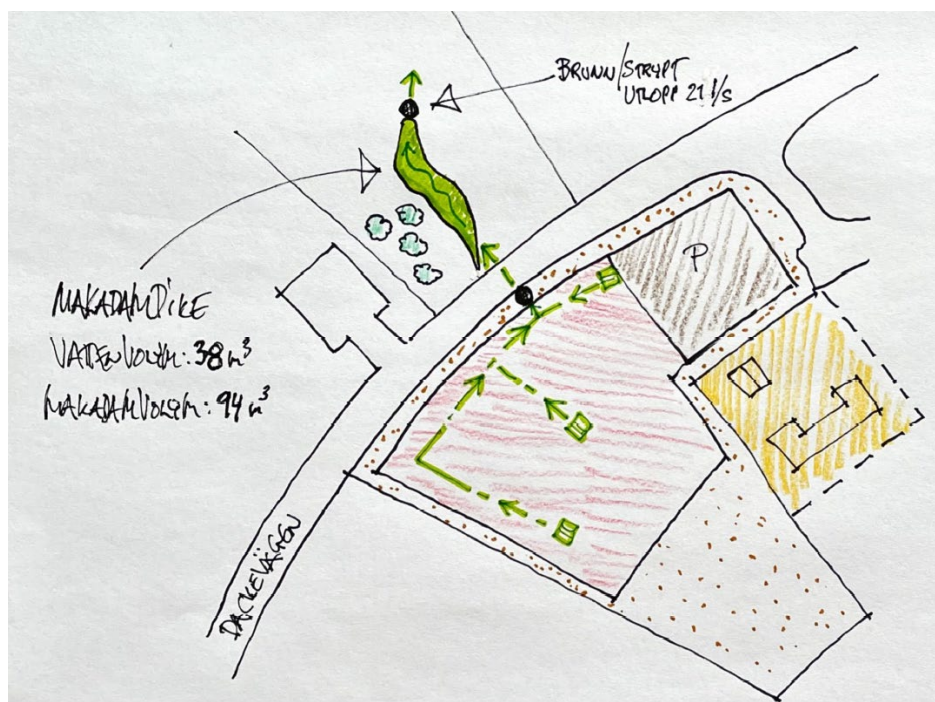 BRUNN/STRYPT
UTLOPP 21 l/s
P
MAKADAMDIKE
VATTENVOLYM: 38 m³
MAKADAMVOLYM: 94 m³
DACKEVÄGEN